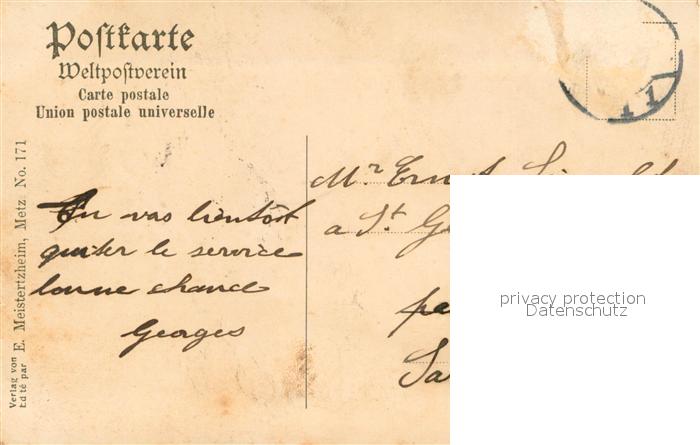 Postkarte
Weltpostverein
Carte postale
Union postale universelle
Verlag von
Edité par E. Meistertzheim, Metz No. 171
Tu vas bientôt
quiter le service
bonne chance
Georges
Mr
a St
11
privacy protection
Datenschutz